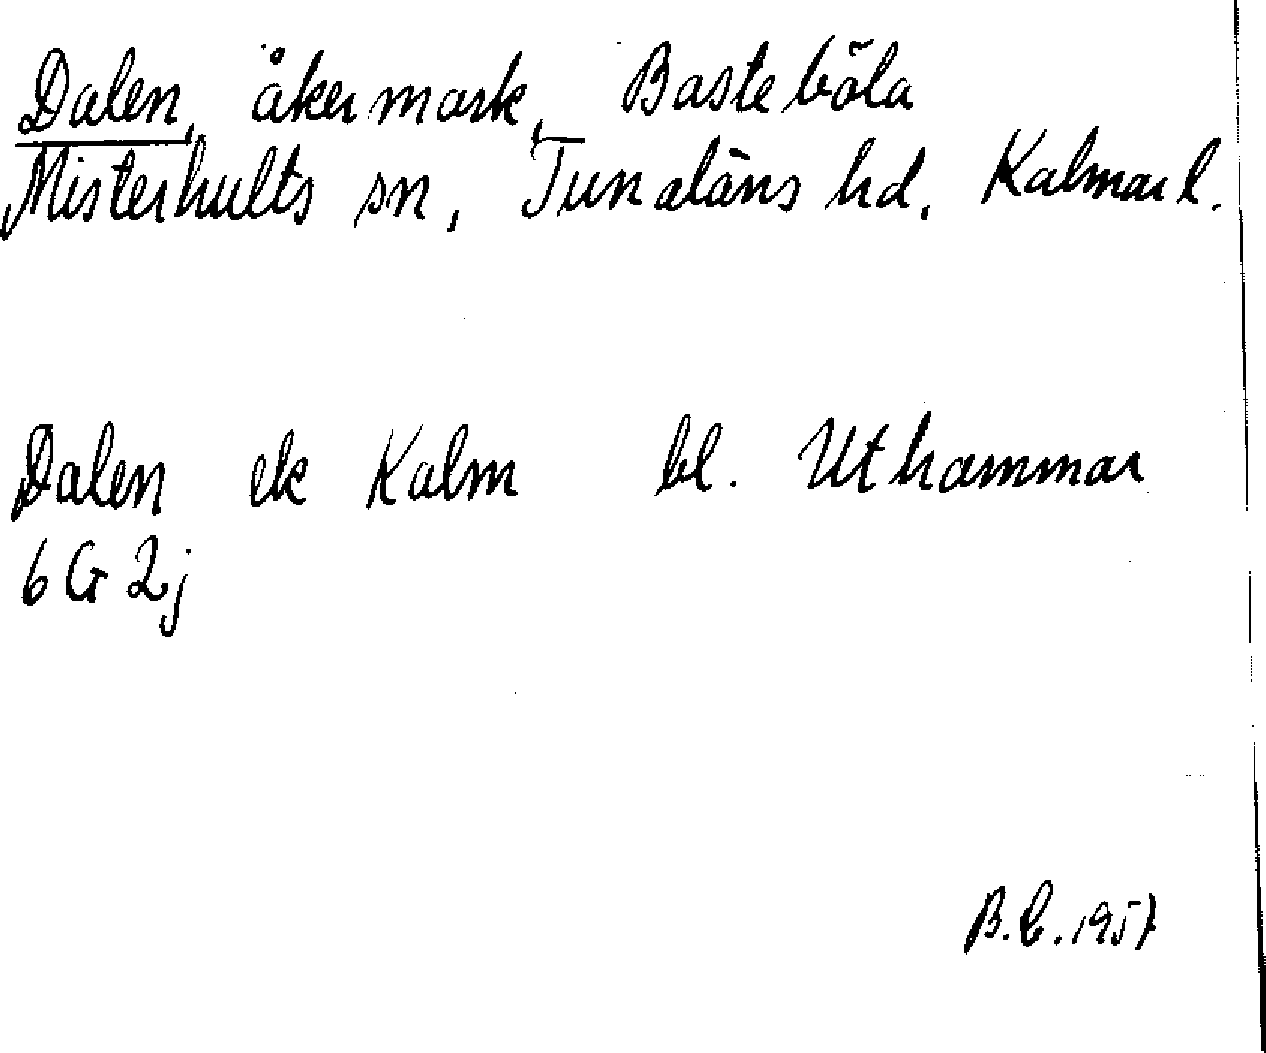 Dalen, åkermark, Basteböla
Misterhults sn, Tunaläns hd. Kalmar l.
Dalen ek Kalm bl. Uthammar
6 G 2j
B.C. 1957